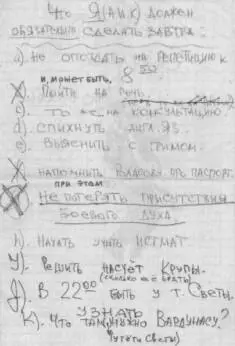 Что Я(А и К) должен
обязательно сделать завтра.
а). Не опоздать на репетицию к
и, может быть, 8 50
Пойти на речь.
с). То же на консультацию.
d). Спихнуть англ. яз.
е). Выяснить с гримом.
Напомнить Власову про паспорт.
при этом
Не потерять присутствия
боевого духа
h). Начать учить истмат.
У). Решить насчёт крупы.
(сколько её брать)
J). В 22 00 быть у т. Светы.
узнать
К). Что там нужно Вардунасу?
(у тёти Светы)